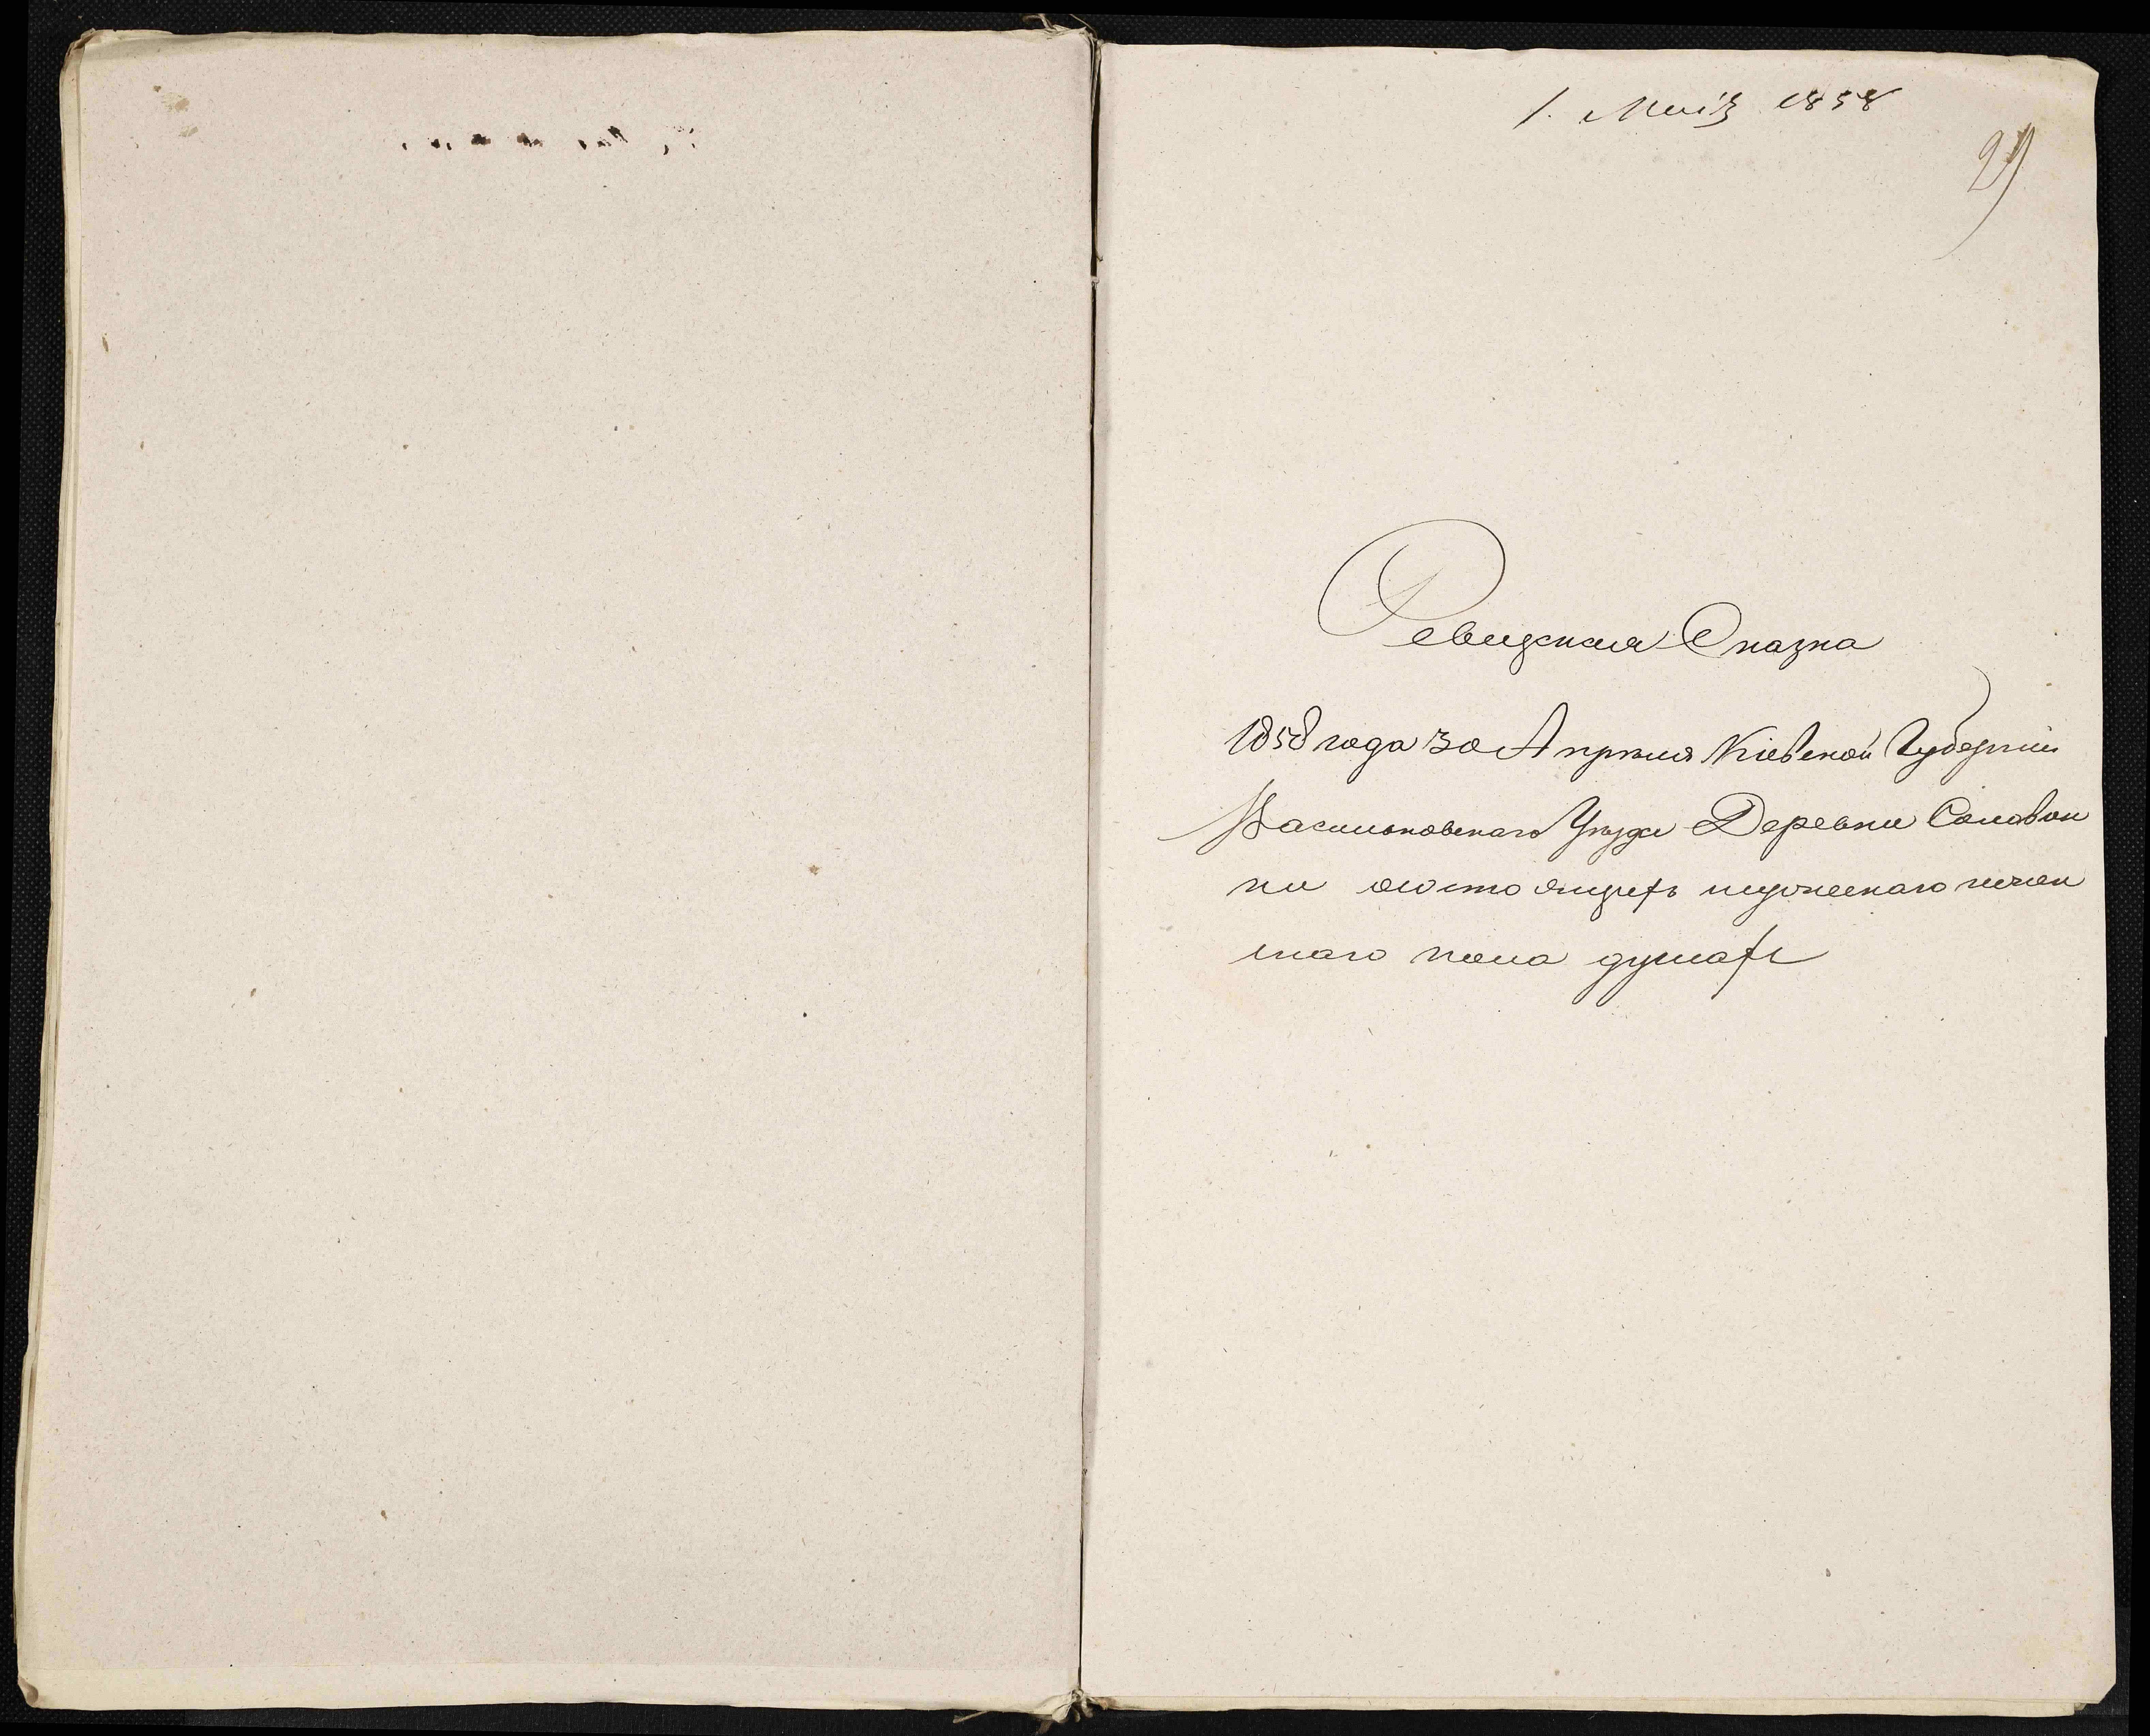 1. Маія 1858
29
Ревизская Сказка
1858 года 30 Апреля Кіевской Губерніи
Васильковскаго Уезда Деревни Соловьи
ки о состоящихъ мужескаго и жен
скаго пола душахъ